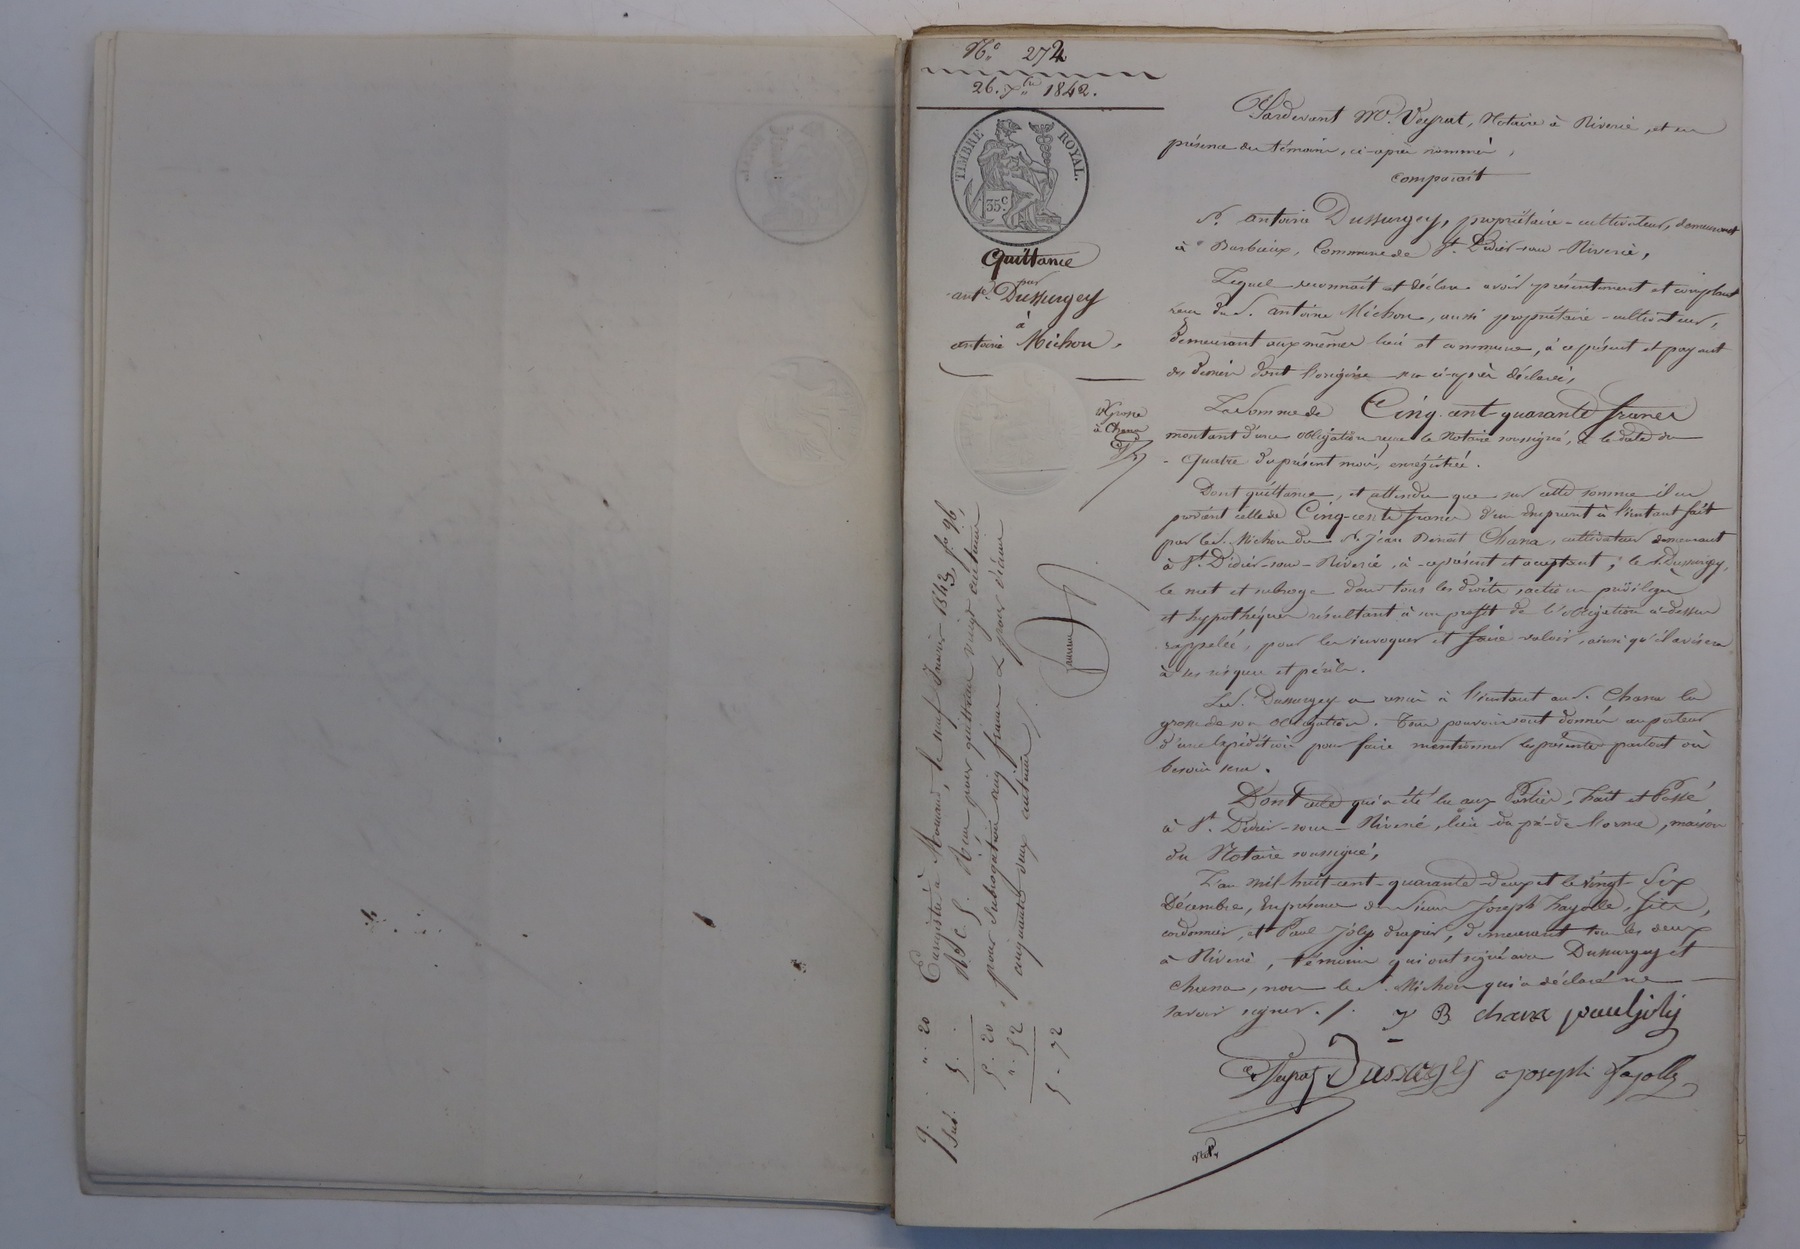 N.o 274
26. Xbre 1842.
TIMBRE ROYAL.
35c
Quittance
par
ant.e Dussurgey
à
antoine Michon.
1e Grosse
à Chana
Pardevant Me. Veyrat, Notaire à Riverie, et en
présence des témoins, ci-après nommés,
comparait
Sr. antoine Dussurgey, propriétaire-cultivateur, demeurant
à Barbieux, Commune de St. Didier-sous-Riverie,
Lequel reconnait et déclare avoir présentement et comptant
reçu du Sr. antoine Michon, aussi propriétaire-cultivateur,
demeurant aux mêmes lieu et commune, à ce présent et payant
des deniers dont l'origine sera ci-après déclarée,
La Somme de Cinq-cent-quarante francs
montant d'une obligation reçue le Notaire soussigné, à la date du
quatre du présent mois, enregistrée.
Dont quittance, et attendu que sur cette somme il en
provient celle de Cinq-cents francs d'un emprunt à l'instant fait
par le S. Michon du Sr. Jean Benoit Chana, cultivateur demeurant
à St. Didier-sous-Riverie, à ce présent et acceptant, le S. Dussurgey,
le met et subroge dans tous les droits, actions, privilèges
et hypothèques résultant à son profit de l'obligation ci-dessus
rappelée, pour les invoquer et faire valoir, ainsi qu'il avisera
à ses risques et périls.
Le S. Dussurgey a remis à l'instant au S. Chana la
grosse de son obligation. Tous pouvoirs sont donnés au porteur
d'une expédition pour faire mentionner les présentes partout où
besoin sera.
Dont acte qui a été lu aux Parties, Fait et Passé
à St. Didier-sous-Riverie, lieu du pré-de l'orme, maison
du Notaire soussigné,
L'an mil-huit-cent-quarante-deux et le vingt-Six
Décembre, En présence de Sieurs Joseph Fayolle, fils,
cordonnier, et Paul Joly drapier, demeurant tous les deux
à Riverie, témoins qui ont signé avec Dussurgey et
Chana, non le S. Michon qui a déclaré ne
savoir signer. /.
J B chana paul joly
Veyrat Dussurgey joseph fayolle
Enregistré à Mornant, le neuf Janvier 1843, fo. 96,
R. c. 5. Reçu pour quittance vingt centimes
pour subrogation cinq francs & pour décime
cinquante-deux centimes.
q. ". 20
Sub. 5. "
5. 20
". 52
5. 72